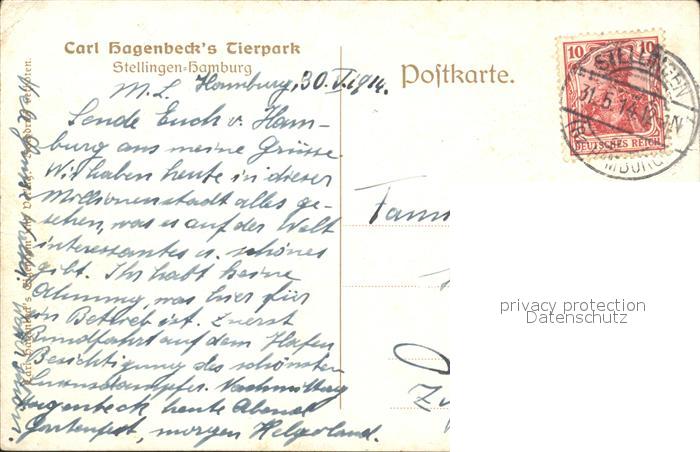 Carl Hagenbeck's Tierpark
Stellingen-Hamburg
Postkarte.
Hamburg, 30. V. 1914.
M. L.
Sende Euch v. Ham-
burg aus meine Grüsse.
Wir haben heute in dieser
Millionenstadt alles ge-
sehen, was es auf der Welt
interessantes u. schönes
gibt. Ihr habt keine
Ahnung, was hier für
ein Betrieb ist. Zuerst
Rundfahrt auf dem Hafen
Besichtigung des schönsten
Luxusdampfer. Nachmittag
Hagenbeck, heute Abend
Gartenfest, morgen Helgoland.
Carl Hagenbeck's
10 10
DEUTSCHES REICH
STELLINGEN
31.5.14
MBURG
privacy protection
Datenschutz